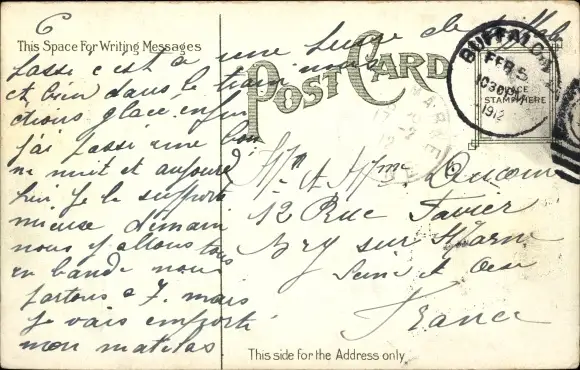 6
This Space For Writing Messages
POST CARD
BUFFALO
FEB 5
10 30 PM
1912
PLACE
STAMP HERE
passé c'est a une
et bien dans le train nous
étions glacé enfin
j'ai passé une bon
ne nuit et aujourd
hui je le supporte
mieuse demain
nous y allons tous
en bande nous
partons a 7. mais
je vais emporté
mon matelas
Mr et Mme
12 Rue Tavier
Bry sur Marne
Seine et Oise
France
This side for the Address only